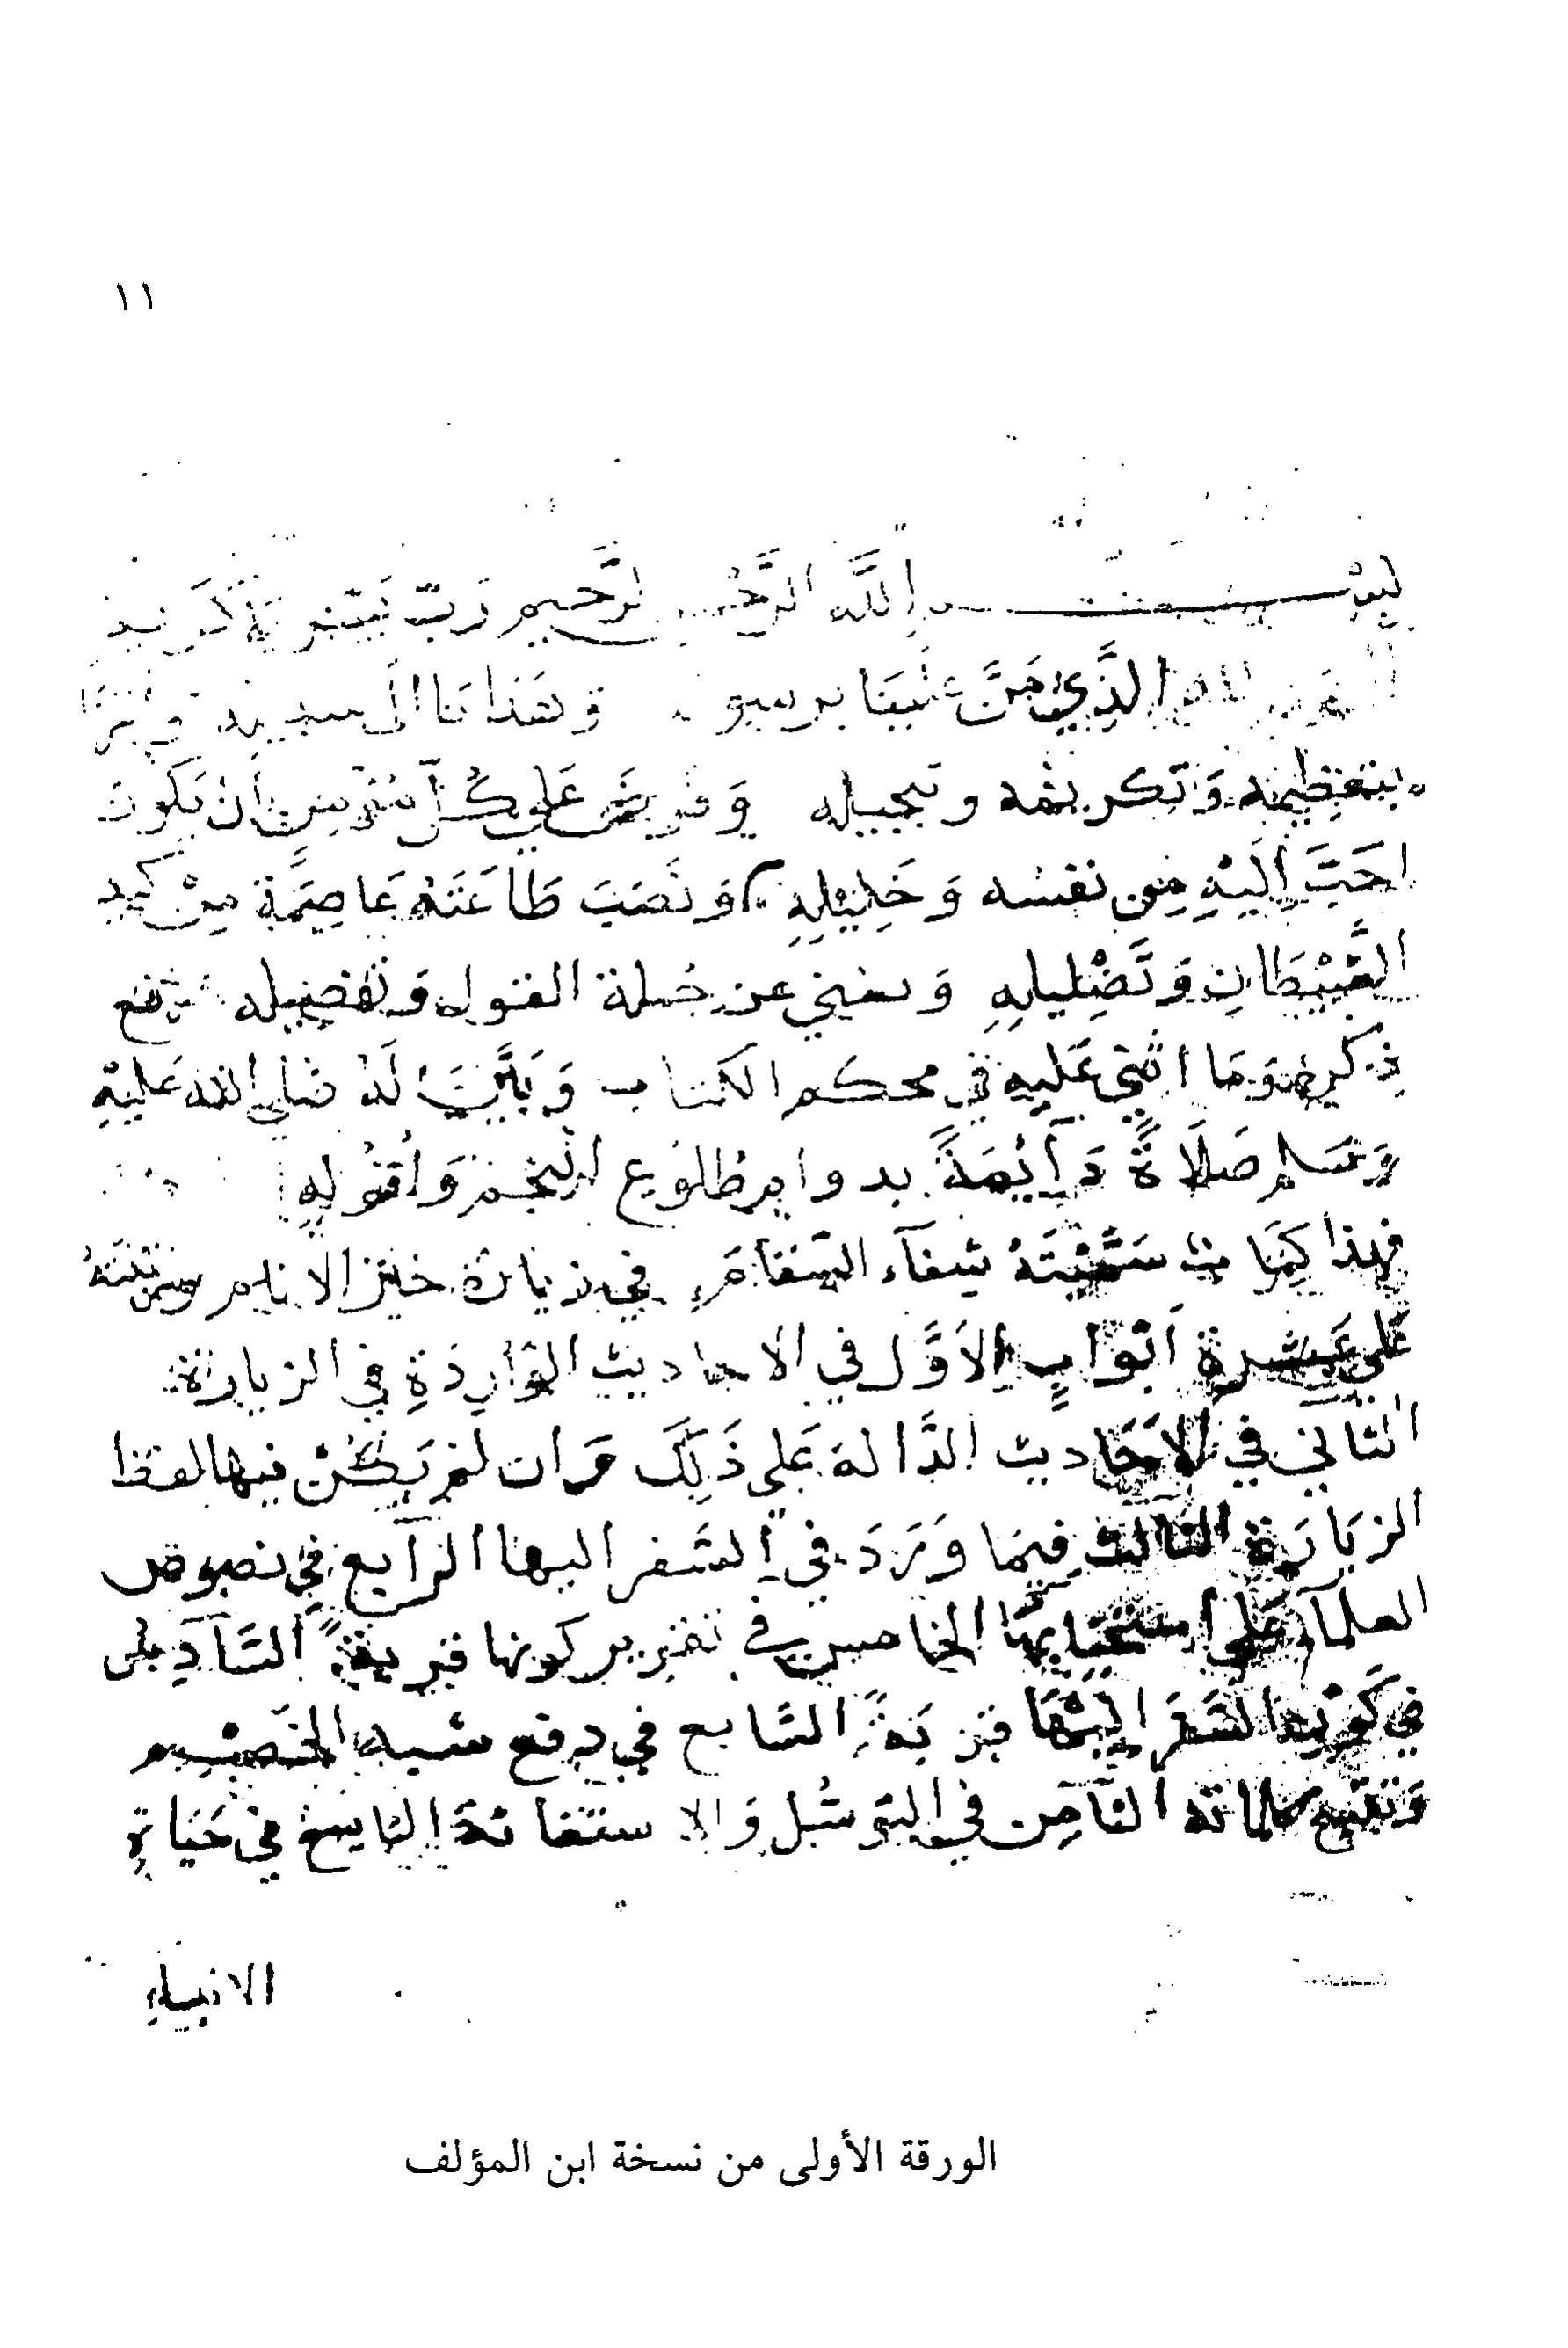 ١١
بسم الله الرحمن الرحيم رب يسر
الذي من علينا برسوله وهدانا الى سبيله
بتعظيمه وتكريمه وتبجيله وفرض على كل مؤمن ان يكون
احب اليه من نفسه وخليله وَنَصَبَ طَاعَتَهُ عَاصِمَة مِنْ كيد
الشَّيْطَانِ وَتَضْلِيلِهِ ويغني عن جملة القول وتفصيله رفع
ذكره وَمَا اثنى عَلَيهِ في محكم الكتاب صلى الله عَليْهِ
وَسَلم صَلَاةً دَآئِمَةً بدوام طلوع النجم وَأفوله
فهذا كتاب سَمَّيْتَهُ شفآء السقام في زيارة خير الانام ورتبته
على عشرة أبواب الأوَّل في الاحاديث الوَارِدَةِ في الزيارة
الثاني في الاحَاديث الدَّالة عَلى ذَلِكَ وان لم يَكُنْ فيها لفظ
الزيَارَة الثالث فيمَا وَرَدَ في السَفر اليها الرابع في نصوص
العلمآء عَلى استحبابها الخامس في تقرير كونها قربة السَّادس
في كون السَفَر اليْهَا قربَة السَّابع في دفع شبه الخصم
وتتبع كلماته الثامن في التوسُّل وَالاستغاثة التاسع في حَيَاةِ
الانبياء
الورقة الأولى من نسخة ابن المؤلف